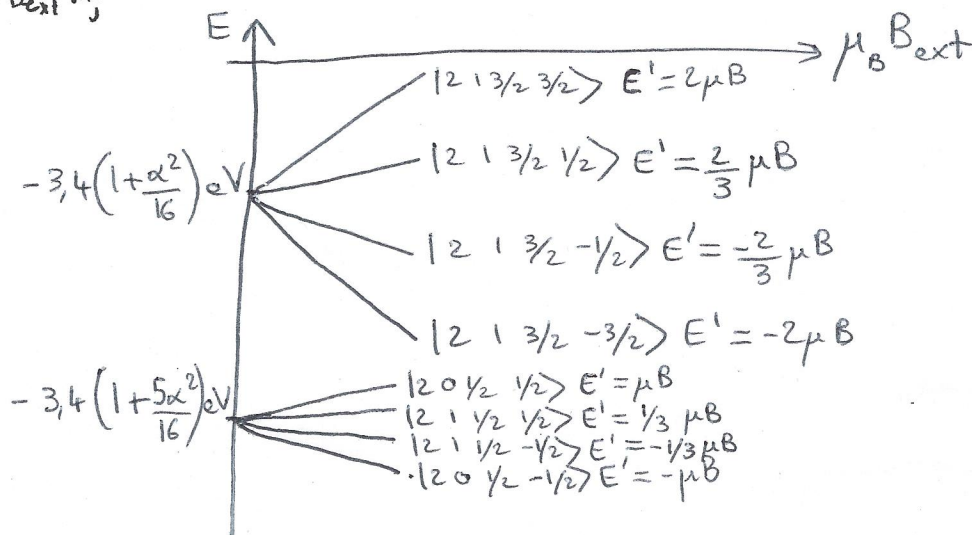 Bext
E
μ_B Bext
|2 1 3/2 3/2> E' = 2μB
-3,4(1+α²/16) eV
|2 1 3/2 1/2> E' = 2/3 μB
|2 1 3/2 -1/2> E' = -2/3 μB
|2 1 3/2 -3/2> E' = -2μB
-3,4(1+5α²/16) eV
|2 0 1/2 1/2> E' = μB
|2 1 1/2 1/2> E' = 1/3 μB
|2 1 1/2 -1/2> E' = -1/3 μB
|2 0 1/2 -1/2> E' = -μB